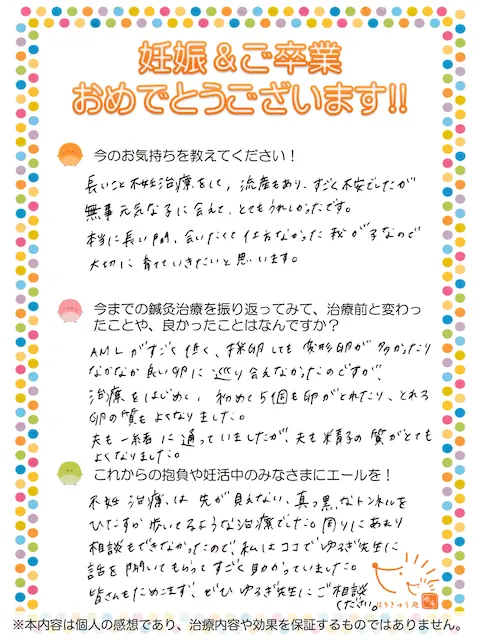 妊娠&ご卒業
おめでとうございます!!
今のお気持ちを教えてください！
長いこと不妊治療をして、流産もあり、すごく不安でしたが
無事元気な子に会えて、とてもうれしかったです。
本当に長い間、会いたくて仕方なかった我が子なので
大切に育てていきたいと思います。
今までの鍼灸治療を振り返ってみて、治療前と変わっ
たことや、良かったことはなんですか？
AMLがすごく低く、採卵しても変形卵が多かったり
なかなか良い卵に巡り会えなかったのですが、
治療をはじめて、初めて5個も卵がとれたり、とれる
卵の質もよくなりました。
夫も一緒に通っていましたが、夫も精子の質がとても
よくなりました。
これからの抱負や妊活中のみなさまにエールを！
不妊治療は先が見えない、真っ黒なトンネルを
ひたすら歩いてるような治療でした。周りにあまり
相談もできなかったので、私はココでゆるぎ先生に
話を聞いてもらってすごく助かっていました。
皆さんもためこまず、ぜひゆるぎ先生にご相談
ください。
はりきゅう処
※本内容は個人の感想であり、治療内容や効果を保証するものではありません。